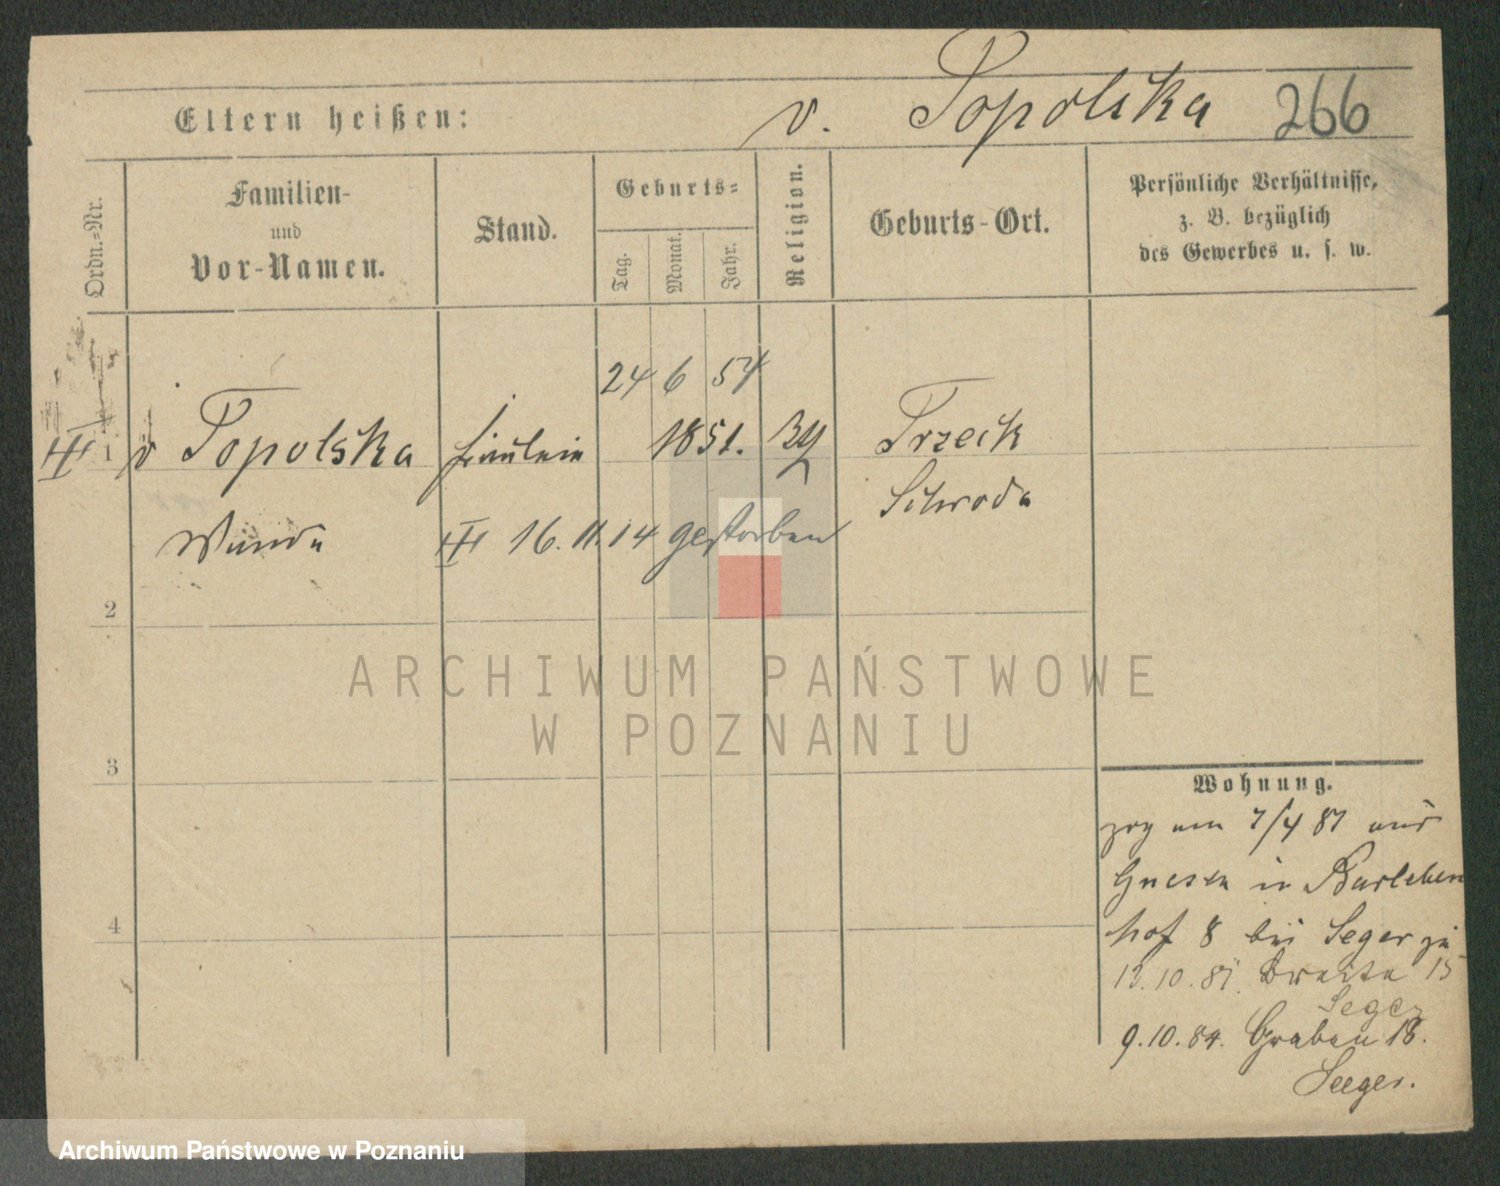 v. Topolska 266
Eltern heißen:
Ordn.=Nr.
Familien-
und
Vor-Namen.
Stand.
Geburts=
Tag.
Monat.
Jahr.
Religion.
Geburts-Ort.
Persönliche Verhältnisse,
z. B. bezüglich
des Gewerbes u. s. w.
24 6 54
1 v Topolska Fräulein 1851. Trzeck
Schroda
Wanda 16.11.14 gestorben
2
3
4
Wohnung.
zog am 7/4 81 aus
Gnesen in Barleben
hof 8 bei Seger zu
13.10.81. Breite 15
Seger
9.10.84. Graben 18.
Seeger.
ARCHIWUM PAŃSTWOWE
W POZNANIU
Archiwum Państwowe w Poznaniu